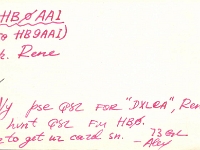 HBØAAI
HB9AAI)
Rene
pse QSL FOR "DXLCA", Rene
hunt QSL Fm HBØ.
to get ur card sn.
73 es GL
- Alex